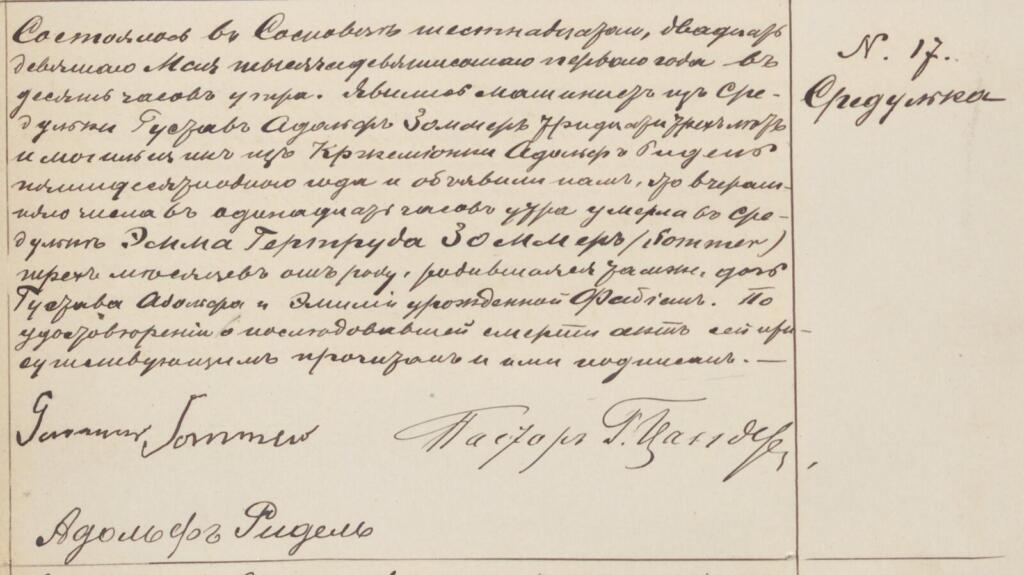 Состоялось въ Сосновцѣ шестнадцатаго, двадцать
девятаго Мая тысяча девятисотаго перваго года въ
десять часовъ утра. Явились машинистъ изъ Сре-
дульки Густавъ Адольфъ Зоммеръ тридцати трехъ лѣтъ
и могильщикъ изъ Кржемионки Адольфъ Ридель
пятидесяти одного года и объявили намъ, что вчераш-
няго числа въ одинадцать часовъ утра умерла въ Сре-
дулькѣ Эмма Гертруда Зоммеръ /Sommer/
трехъ мѣсяцевъ отъ роду, родившаяся тамже, дочь
Густава Адольфа и Эмиліи урожденной Фабіанъ. По
удостовѣреніи о послѣдовавшей смерти актъ сей при-
сутствующимъ прочитанъ и ими подписанъ. —
Sommer
Пасторъ Г. Цандеръ
Адольфъ Ридель
N. 17.
Средулька